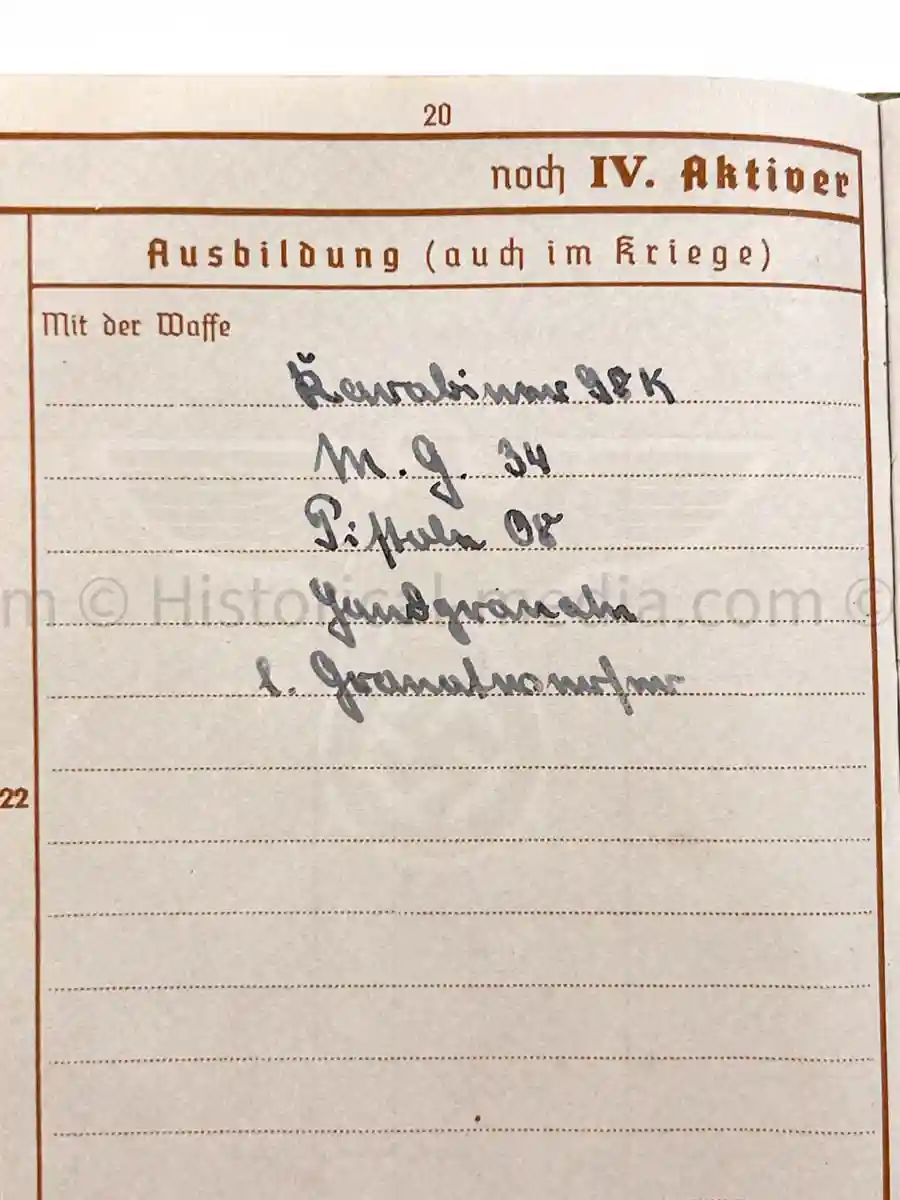 20
noch IV. Aktiver
Ausbildung (auch im Kriege)
Mit der Waffe
Karabiner 98 K
M. G. 34
Pistole 08
Handgranate
l. Granatwerfer
22
m © Historical-media.com ©